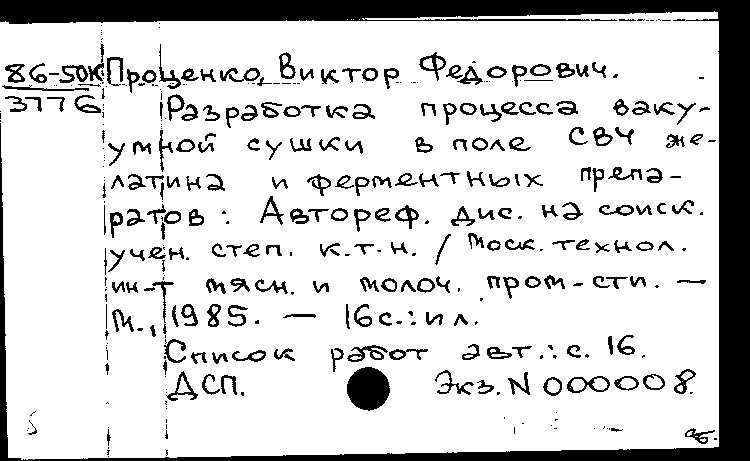 86-50К Проценко, Виктор Федорович.
3776 Разработка процесса ваку-
умной сушки в поле СВЧ же-
латина и ферментных препа-
ратов : Автореф. дис. на соиск.
учен. степ. к.т.н. / Моск. технол.
ин-т мясн. и молоч. пром-сти. —
М., 1985. — 16с.: ил.
Список работ авт.: с. 16.
ДСП. Экз. N 000008.